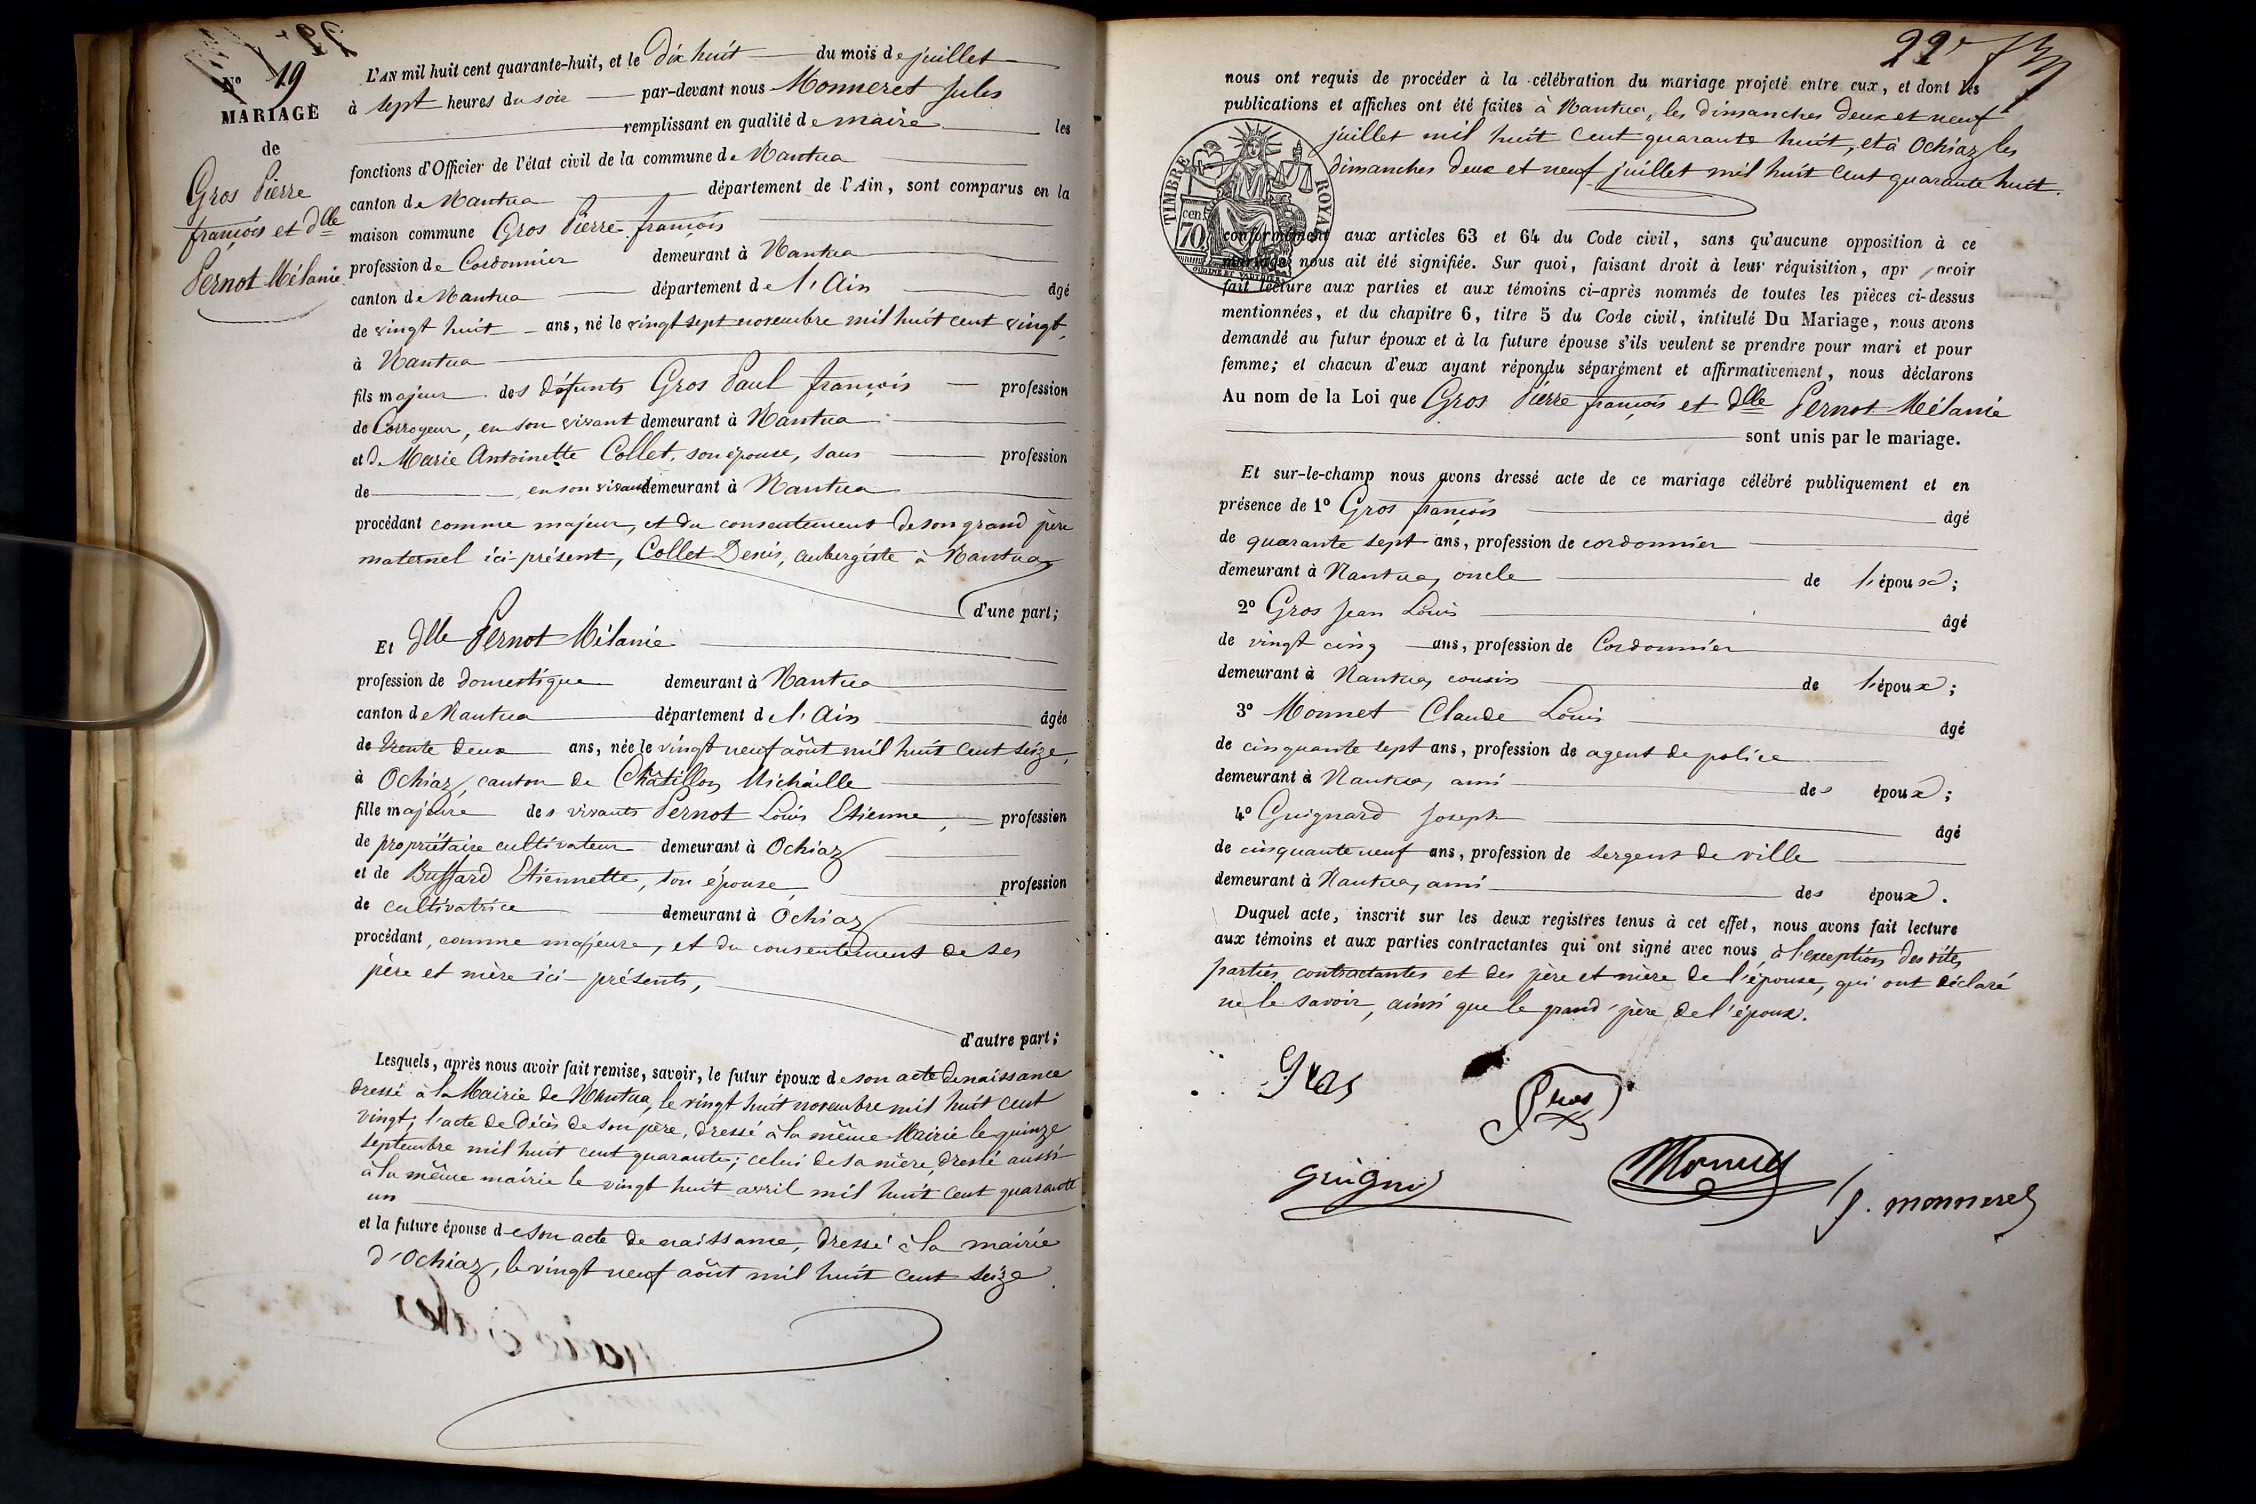 Nº 19
MARIAGE
de
Gros Pierre
françois et dlle
Pernot Mélanie
L'AN mil huit cent quarante-huit, et le dix huit du mois de juillet
à sept heures du soir par-devant nous Monneret Jules
remplissant en qualité de maire les
fonctions d'Officier de l'état civil de la commune de Nantua
canton de Nantua département de l'Ain, sont comparus en la
maison commune Gros Pierre françois
profession de Cordonnier demeurant à Nantua
canton de Nantua département de l'Ain âgé
de vingt huit ans, né le vingt sept novembre mil huit cent vingt,
à Nantua
fils majeur des défunts Gros Paul françois profession
de Corroyeur, en son vivant demeurant à Nantua
et de Marie Antoinette Collet, son épouse, sans profession
de en son vivant demeurant à Nantua
procédant comme majeur, et du consentement de son grand père
maternel ici présent, Collet Denis, aubergiste à Nantua
d'une part;
Et dlle Pernot Mélanie
profession de domestique demeurant à Nantua
canton de Nantua département de l'Ain âgée
de trente deux ans, née le vingt neuf août mil huit cent seize,
à Ochiaz, canton de Châtillon Michaille
fille majeure des vivants Pernot Louis Etienne, profession
de propriétaire cultivateur demeurant à Ochiaz
et de Buffard Etiennette, son épouse profession
de cultivatrice demeurant à Ochiaz
procédant, comme majeure, et du consentement de ses
père et mère ici présents,
d'autre part;
Lesquels, après nous avoir fait remise, savoir, le futur époux de son acte de naissance
dressé à la Mairie de Nantua, le vingt huit novembre mil huit cent
vingt; l'acte de décès de son père, dressé à la même Mairie le quinze
septembre mil huit cent quarante; celui de sa mère, dressé aussi
à la même mairie le vingt huit avril mil huit cent quarante
un
et la future épouse de son acte de naissance, dressé à la mairie
d'Ochiaz, le vingt neuf août mil huit cent seize
22e
nous ont requis de procéder à la célébration du mariage projeté entre eux, et dont les
publications et affiches ont été faites à Nantua, les dimanches deux et neuf
juillet mil huit cent quarante huit, et à Ochiaz les
dimanches deux et neuf juillet mil huit cent quarante huit.
TIMBRE ROYAL
70 cen
conformément aux articles 63 et 64 du Code civil, sans qu'aucune opposition à ce
mariage nous ait été signifiée. Sur quoi, faisant droit à leur réquisition, apr avoir
fait lecture aux parties et aux témoins ci-après nommés de toutes les pièces ci-dessus
mentionnées, et du chapitre 6, titre 5 du Code civil, intitulé Du Mariage, nous avons
demandé au futur époux et à la future épouse s'ils veulent se prendre pour mari et pour
femme; et chacun d'eux ayant répondu séparément et affirmativement, nous déclarons
Au nom de la Loi que Gros Pierre françois et dlle Pernot Mélanie
sont unis par le mariage.
Et sur-le-champ nous avons dressé acte de ce mariage célébré publiquement et en
présence de 1º Gros françois âgé
de quarante sept ans, profession de cordonnier
demeurant à Nantua, oncle de l'époux;
2º Gros Jean Louis âgé
de vingt cinq ans, profession de Cordonnier
demeurant à Nantua, cousin de l'époux;
3º Monnet Claude Louis âgé
de cinquante sept ans, profession de agent de police
demeurant à Nantua, ami des époux;
4º Guignard Joseph âgé
de cinquante neuf ans, profession de sergent de ville
demeurant à Nantua, ami des époux.
Duquel acte, inscrit sur les deux registres tenus à cet effet, nous avons fait lecture
aux témoins et aux parties contractantes qui ont signé avec nous à l'exception des dites
parties contractantes et des père et mère de l'épouse, qui ont déclaré
ne le savoir, ainsi que le grand-père de l'époux.
Gros
Gros
Monnet
J. monneret